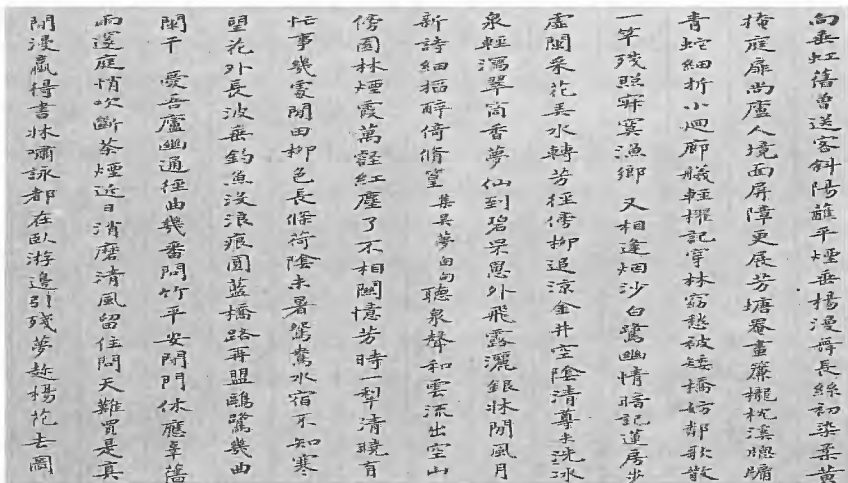 向垂虹舊曾送客斜陽蘸平煙垂楊漫舞長絲初染柔黃
掩庭扉尚廬人境面屏障更展芳塘罨畫簾櫳枕溪牕牖
青蛇細折小迴廊艤輕櫂記穿林窈愁被矮橋妨都歌散
一竿殘照寂寞漁鄉 又相逢烟沙白鷺幽情暗記蓮房步
虛閣采花弄水轉芳徑傍柳追涼金井空陰清尊未洗冰
泉輕瀉翠筒香夢仙到碧罘罳外飛露灑銀牀閒風月
新詩細搯醉倚脩篁 集吳夢囪句 聽泉聲和雲流出空山
傍園林煙霞萬壑紅塵了不相關憶芳時一犁清曉肯
忙事幾處閒田柳色長條荷陰未暑鴛鴦水宿不知寒
望花外長波垂釣魚沒浪痕圓藍橋路再盟鷗鷺幾曲
闌干 愛吾廬幽通徑曲幾番問竹平安閉門休應
雨邃庭悄吹斷茶煙近日消磨清風留住問天難買是真
閒漫贏得書牀嘯詠都在臥游邊引殘夢趁楊花去